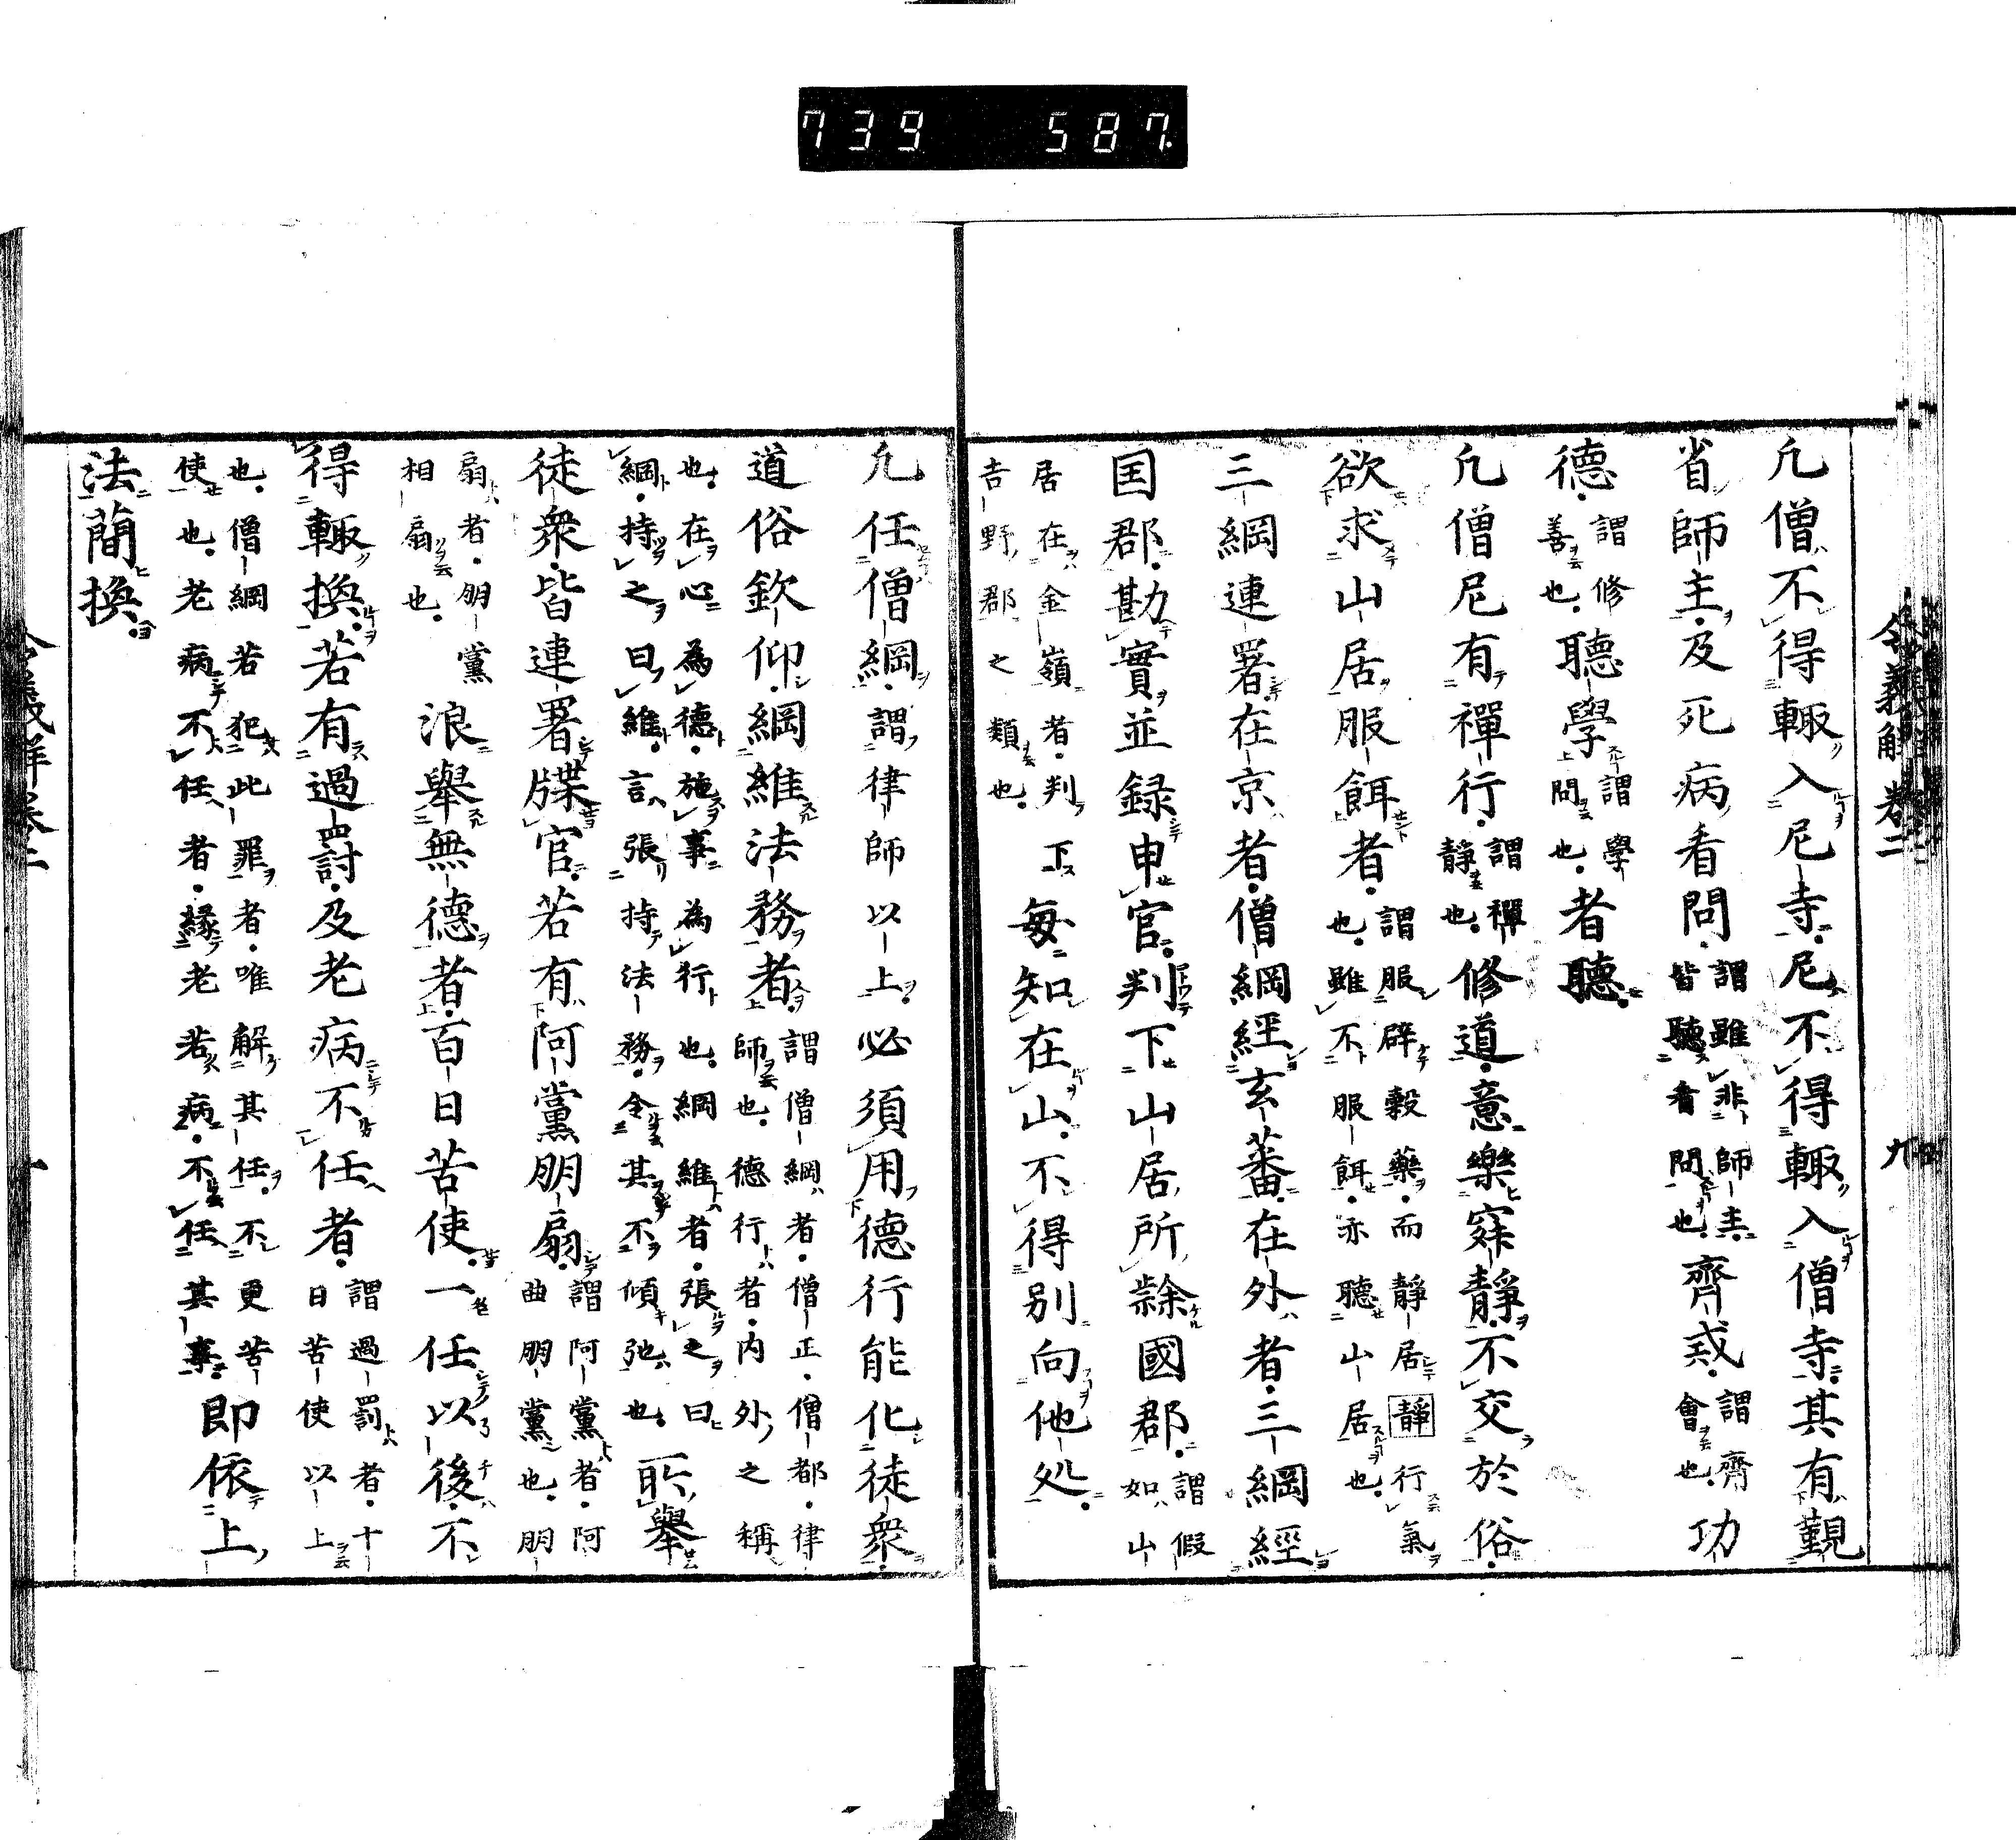 739 587.
令義解卷二 九
凢僧不得輙入尼寺尼不得輙入僧寺其有覲
省師主及死病看問謂雖非師主皆聽看問也齊戒謂齊會也功
德謂修善也聽學謂學問也者聽
凢僧尼有禪行謂禪靜也修道意樂寂靜不交於俗
欲求山居服餌者謂服辟穀藥而靜居靜行氣也雖不服餌亦聽山居也
三綱連署在京者僧綱經玄蕃在外者三綱經
国郡勘實並録申官判下山居所隷國郡謂假如山
居在金嶺者判下吉野郡之類也每知在山不得別向他処
凢任僧綱謂律師以上必須用德行能化徒衆
道俗欽仰綱維法務者謂僧綱者僧正僧都律師也德行者内外之稱
也在心為德施事為行也綱維者張之曰綱持之曰維言張持法務令其不傾弛也所舉
徒衆皆連署牒官若有阿黨朋扇謂阿黨者阿曲朋黨也朋
扇者朋黨相扇也浪舉無德者百日苦使一任以後不
得輙換若有過罰及老病不任者謂過罰者十日苦使以上
也僧綱若犯此罪者唯解其任不更苦使也老病不任者緣老若病不任其事即依上
法簡換